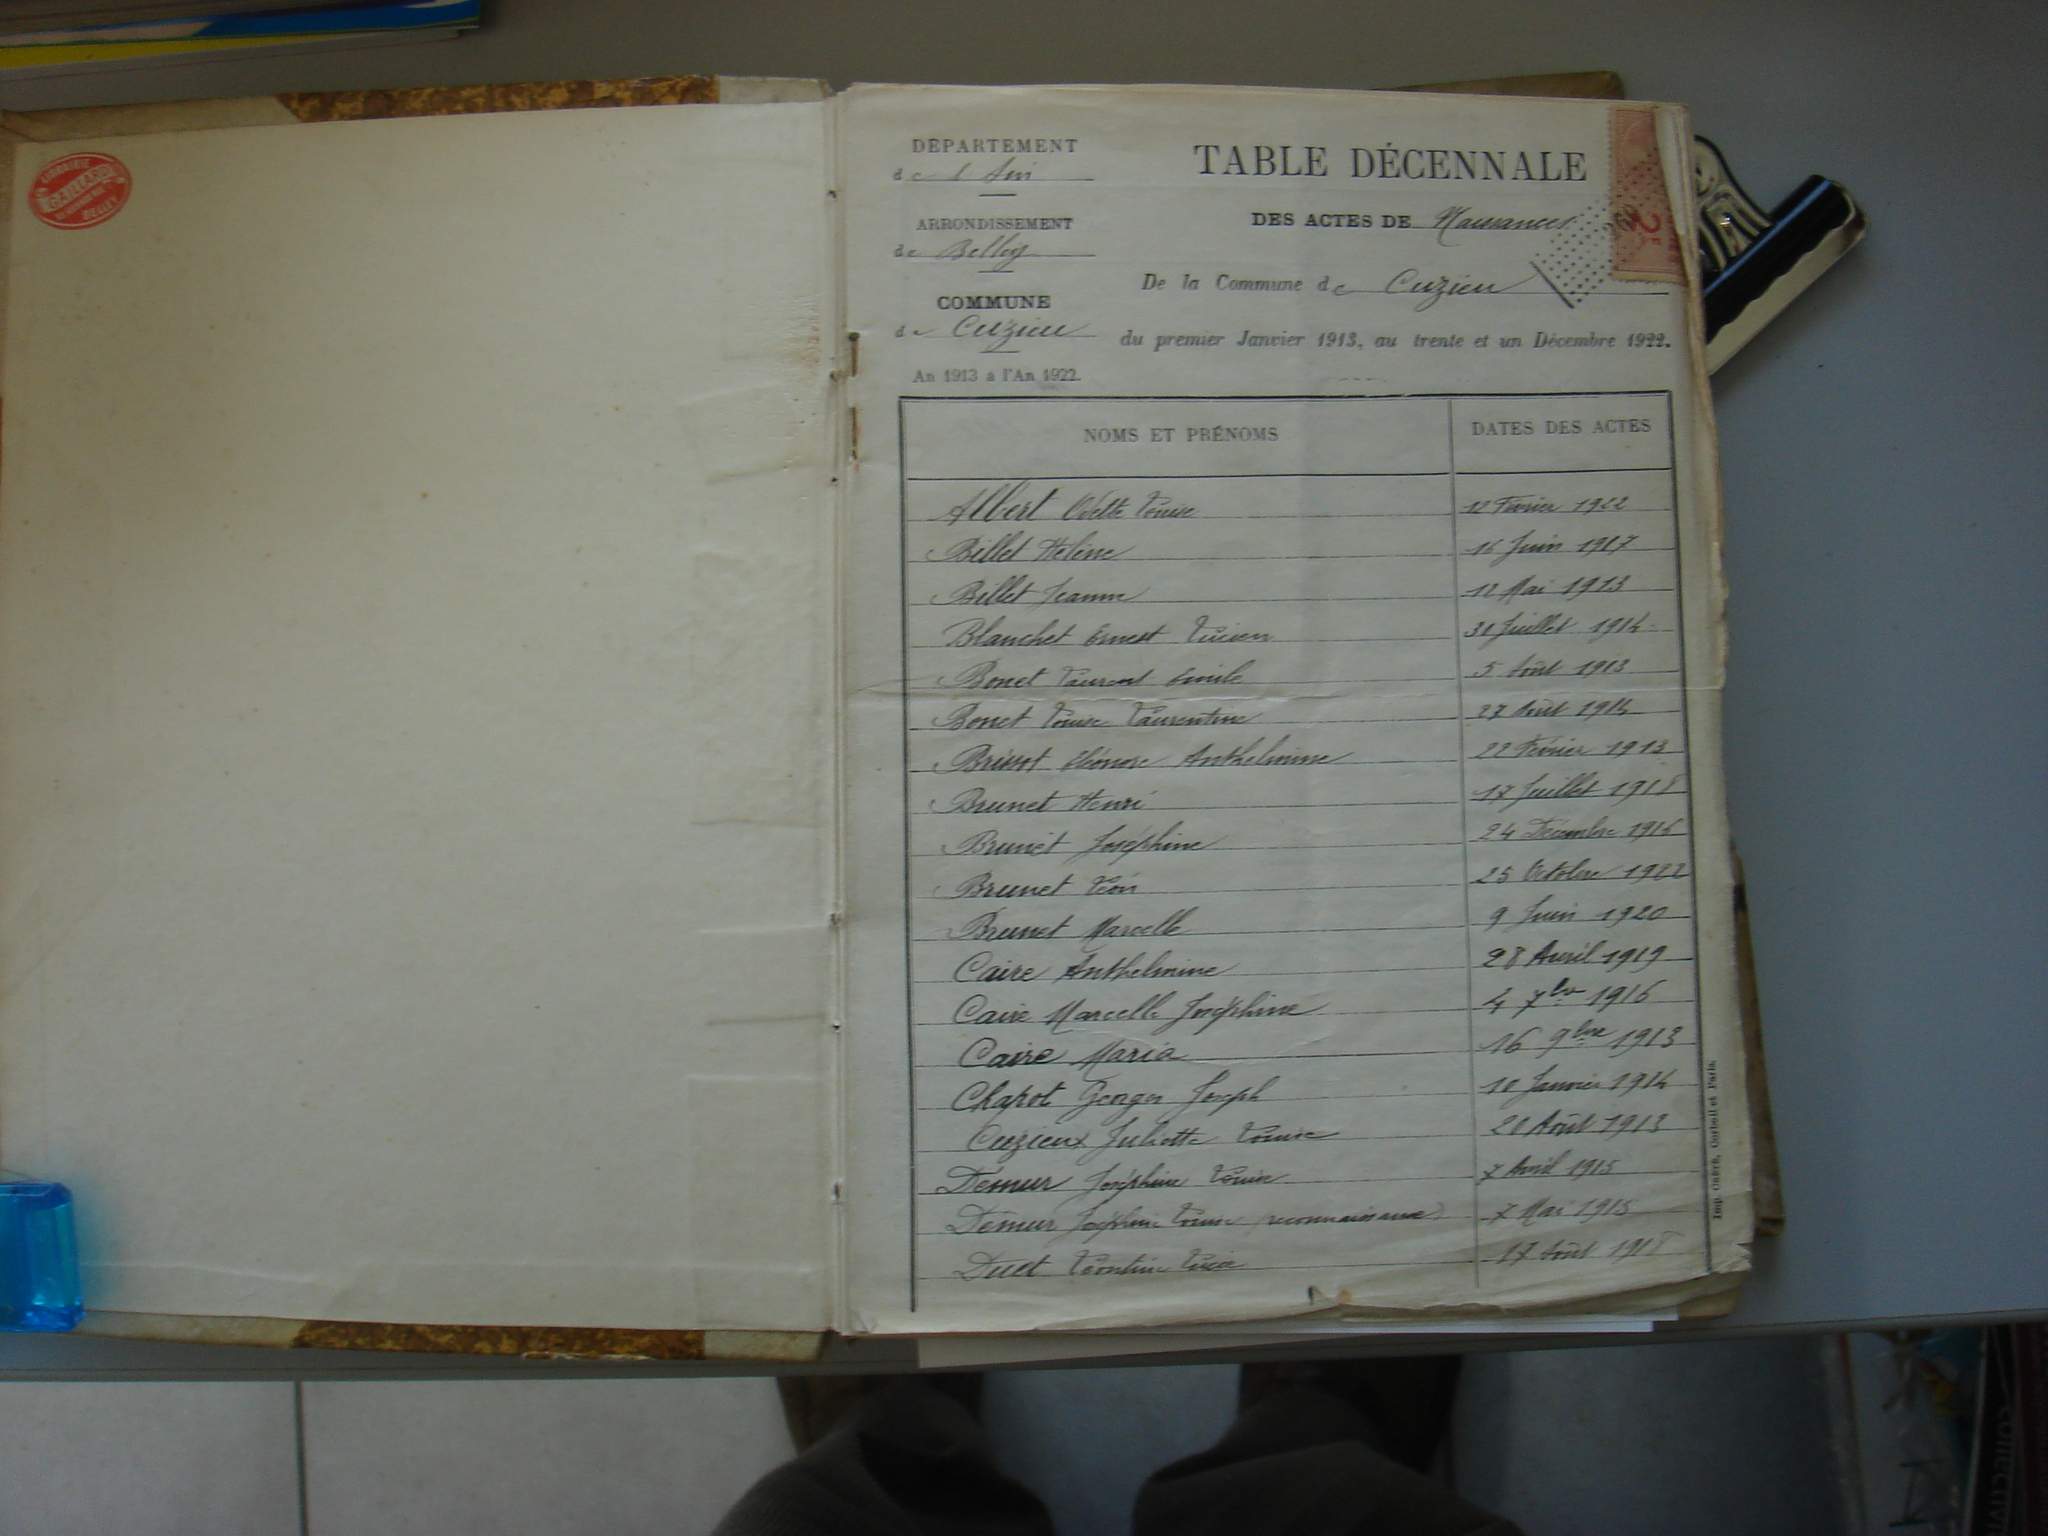 LIBRAIRIE
GAILLARD
BELLEY
DÉPARTEMENT
de l'Ain
ARRONDISSEMENT
de Belley
COMMUNE
de Cuzieu
An 1913 à l'An 1922.
TABLE DÉCENNALE
DES ACTES DE Naissances
De la Commune de Cuzieu
du premier Janvier 1913, au trente et un Décembre 1922.
2F
NOMS ET PRÉNOMS DATES DES ACTES
Albert Odette Louise 12 Février 1922
Billet Hélène 16 Juin 1917
Billet Jeanne 12 Mai 1913
Blanchet Ernest Lucien 31 Juillet 1914
Bonet Laurent Emile 5 Août 1913
Bonet Louise Laurentine 27 Août 1914
Brissot Eléonore Anthelmine 22 Février 1913
Brunet Henri 17 Juillet 1918
Brunet Joséphine 24 Décembre 1916
Brunet Léon 25 Octobre 1922
Brunet Marcelle 9 Juin 1920
Caire Anthelmine 28 Avril 1919
Caire Marcelle Joséphine 4 7bre 1916
Caire Maria 16 9bre 1913
Chapot Georges Joseph 10 Janvier 1914
Cuzieux Juliette Louise 20 Août 1913
Demur Joséphine Louise 7 Avril 1915
Demur Joséphine Louise (reconnaissance) 7 Mai 1915
Duet Léontine Lucie 17 Août 1918
Imp. Oberé, Corbeil et Paris